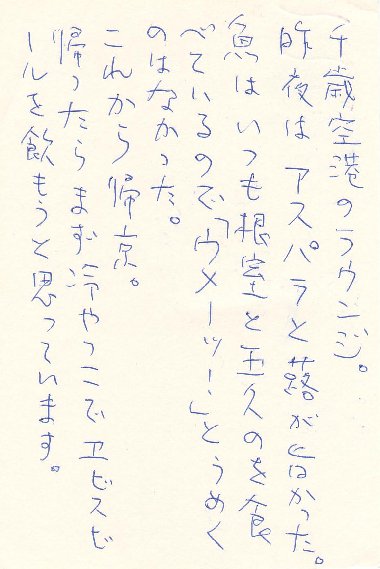 千歳空港のラウンジ。
昨夜は アスパラと蕗が旨かった。
魚はいつも根室と玉久のを食
べているので「ウメーッ!」とうめく
のはなかった。
これから帰京。
帰ったらまず冷やっこでヱビスビ
ールを飲もうと思っています。